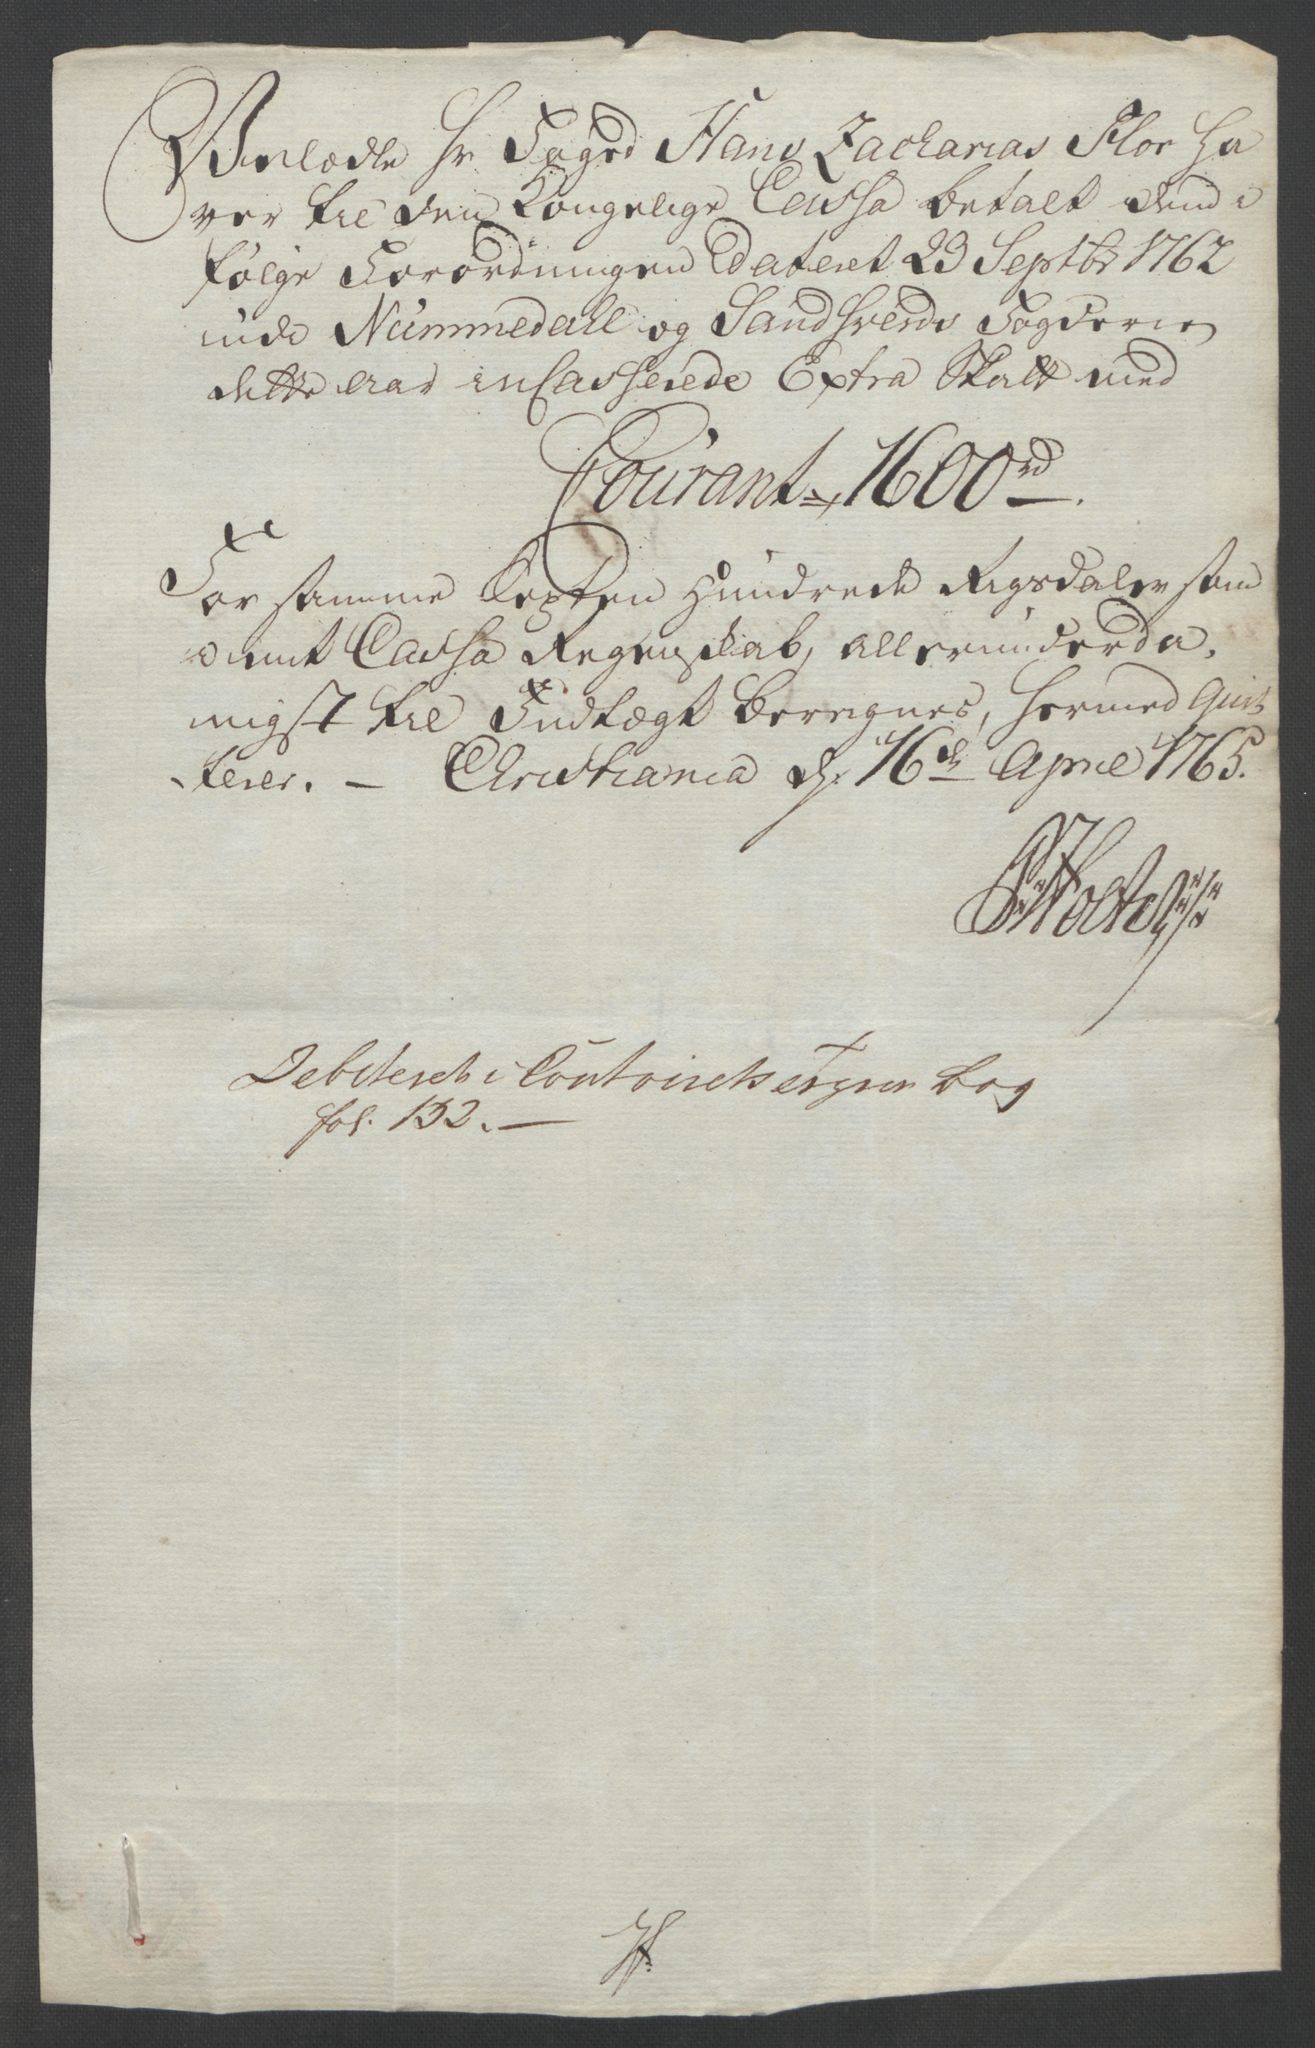 Velædle Hr Foged Hans Zacharias Flor ha
ver til den Kongelige Cassa betalt dend i
følge Forordningen dateret 23 Septbr 1762
inde Nummedall og Sandsverds Fogderie
dette aar incasserede Extra Skatt med
Courant 1600 rd
For samme Sexten Hundrede Rigsdaler som
i mit Cassa Regenskab, allerunderda,
nigst til Indtægt beregnes, hermed Quit
terer. – Christiania d. 16de April 1765.
Holte
Debiteret i Contoirets bog
fol. 132. –